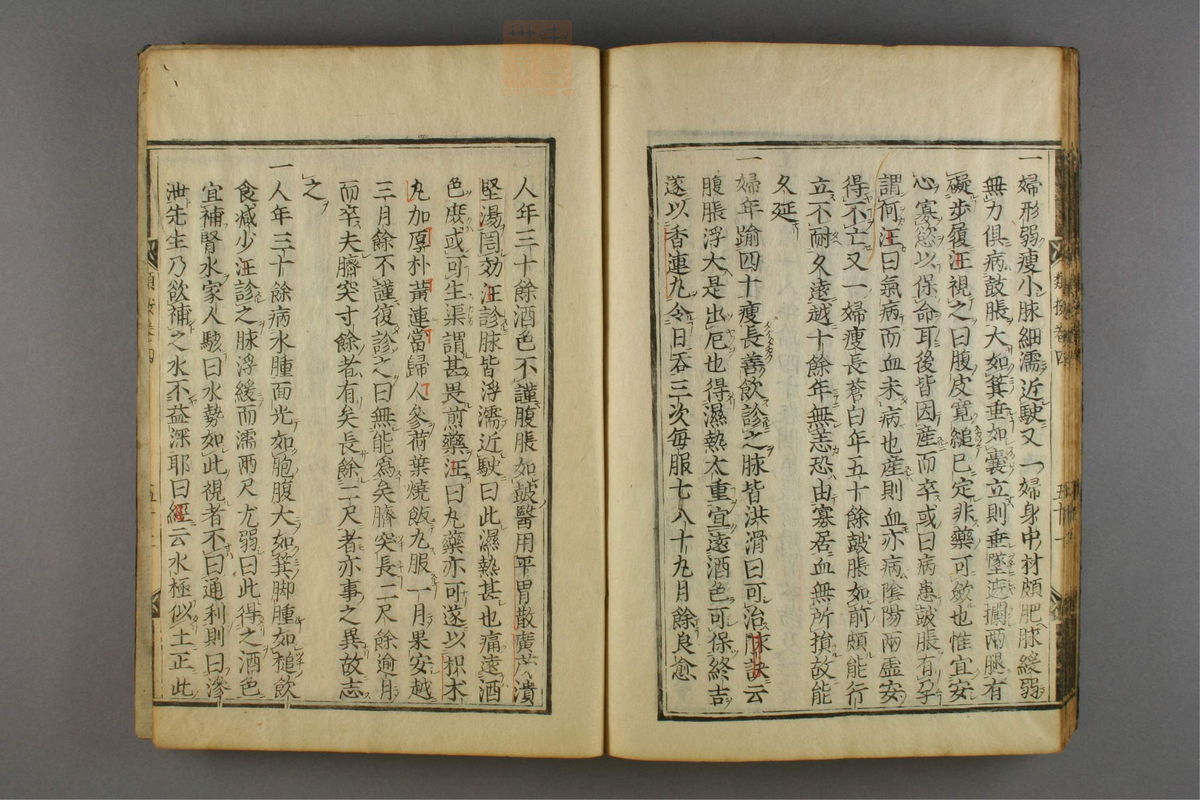 一婦形弱瘦小脉細濡近駛又一婦身中材頗肥脉緩弱
無力俱病鼓脹大如箕垂如囊立則垂墜遮攔兩腿有
礙步履汪視之曰腹皮寛縋已定非藥可斂也惟宜安
心寡慾以保命耳後皆因産而卒或曰病患皷脹有孕
謂何汪曰氣病而血未病也産則血亦病陰陽兩虚安
得不亡又一婦瘦長蒼白年五十餘皷脹如前頗能行
立不耐久遠越十餘年無恙恐由寡居血無所損故能
久延
一婦年踰四十瘦長善飲診之脉皆洪滑曰可治脉訣云
腹脹浮大是出厄也得濕熱太重宜遠酒色可保終吉
遂以香連丸令日吞三次毎服七八十丸月餘良愈
人年三十餘酒色不謹腹脹如皷醫用平胃散廣茂潰
堅湯罔効汪診脉皆浮濡近駛曰此濕熱甚也痛遠酒
色庶或可生渠謂甚畏煎藥汪曰丸藥亦可遂以枳术
丸加厚朴黃連當歸人參荷葉燒飯丸服一月果安越
三月餘不謹復診之曰無能爲矣臍突長二尺餘逾月
而卒夫臍突寸餘者有矣長餘二尺者亦事之異故志
之
一人年三十餘病水腫面光如胞腹大如箕脚腫如槌飲
食减少汪診之脉浮緩而濡兩尺尤弱曰此得之酒色
宜補腎水家人駭曰水勢如此視者不曰通利則曰滲
泄先生乃欲補之水不益深耶曰經云水極似土正此